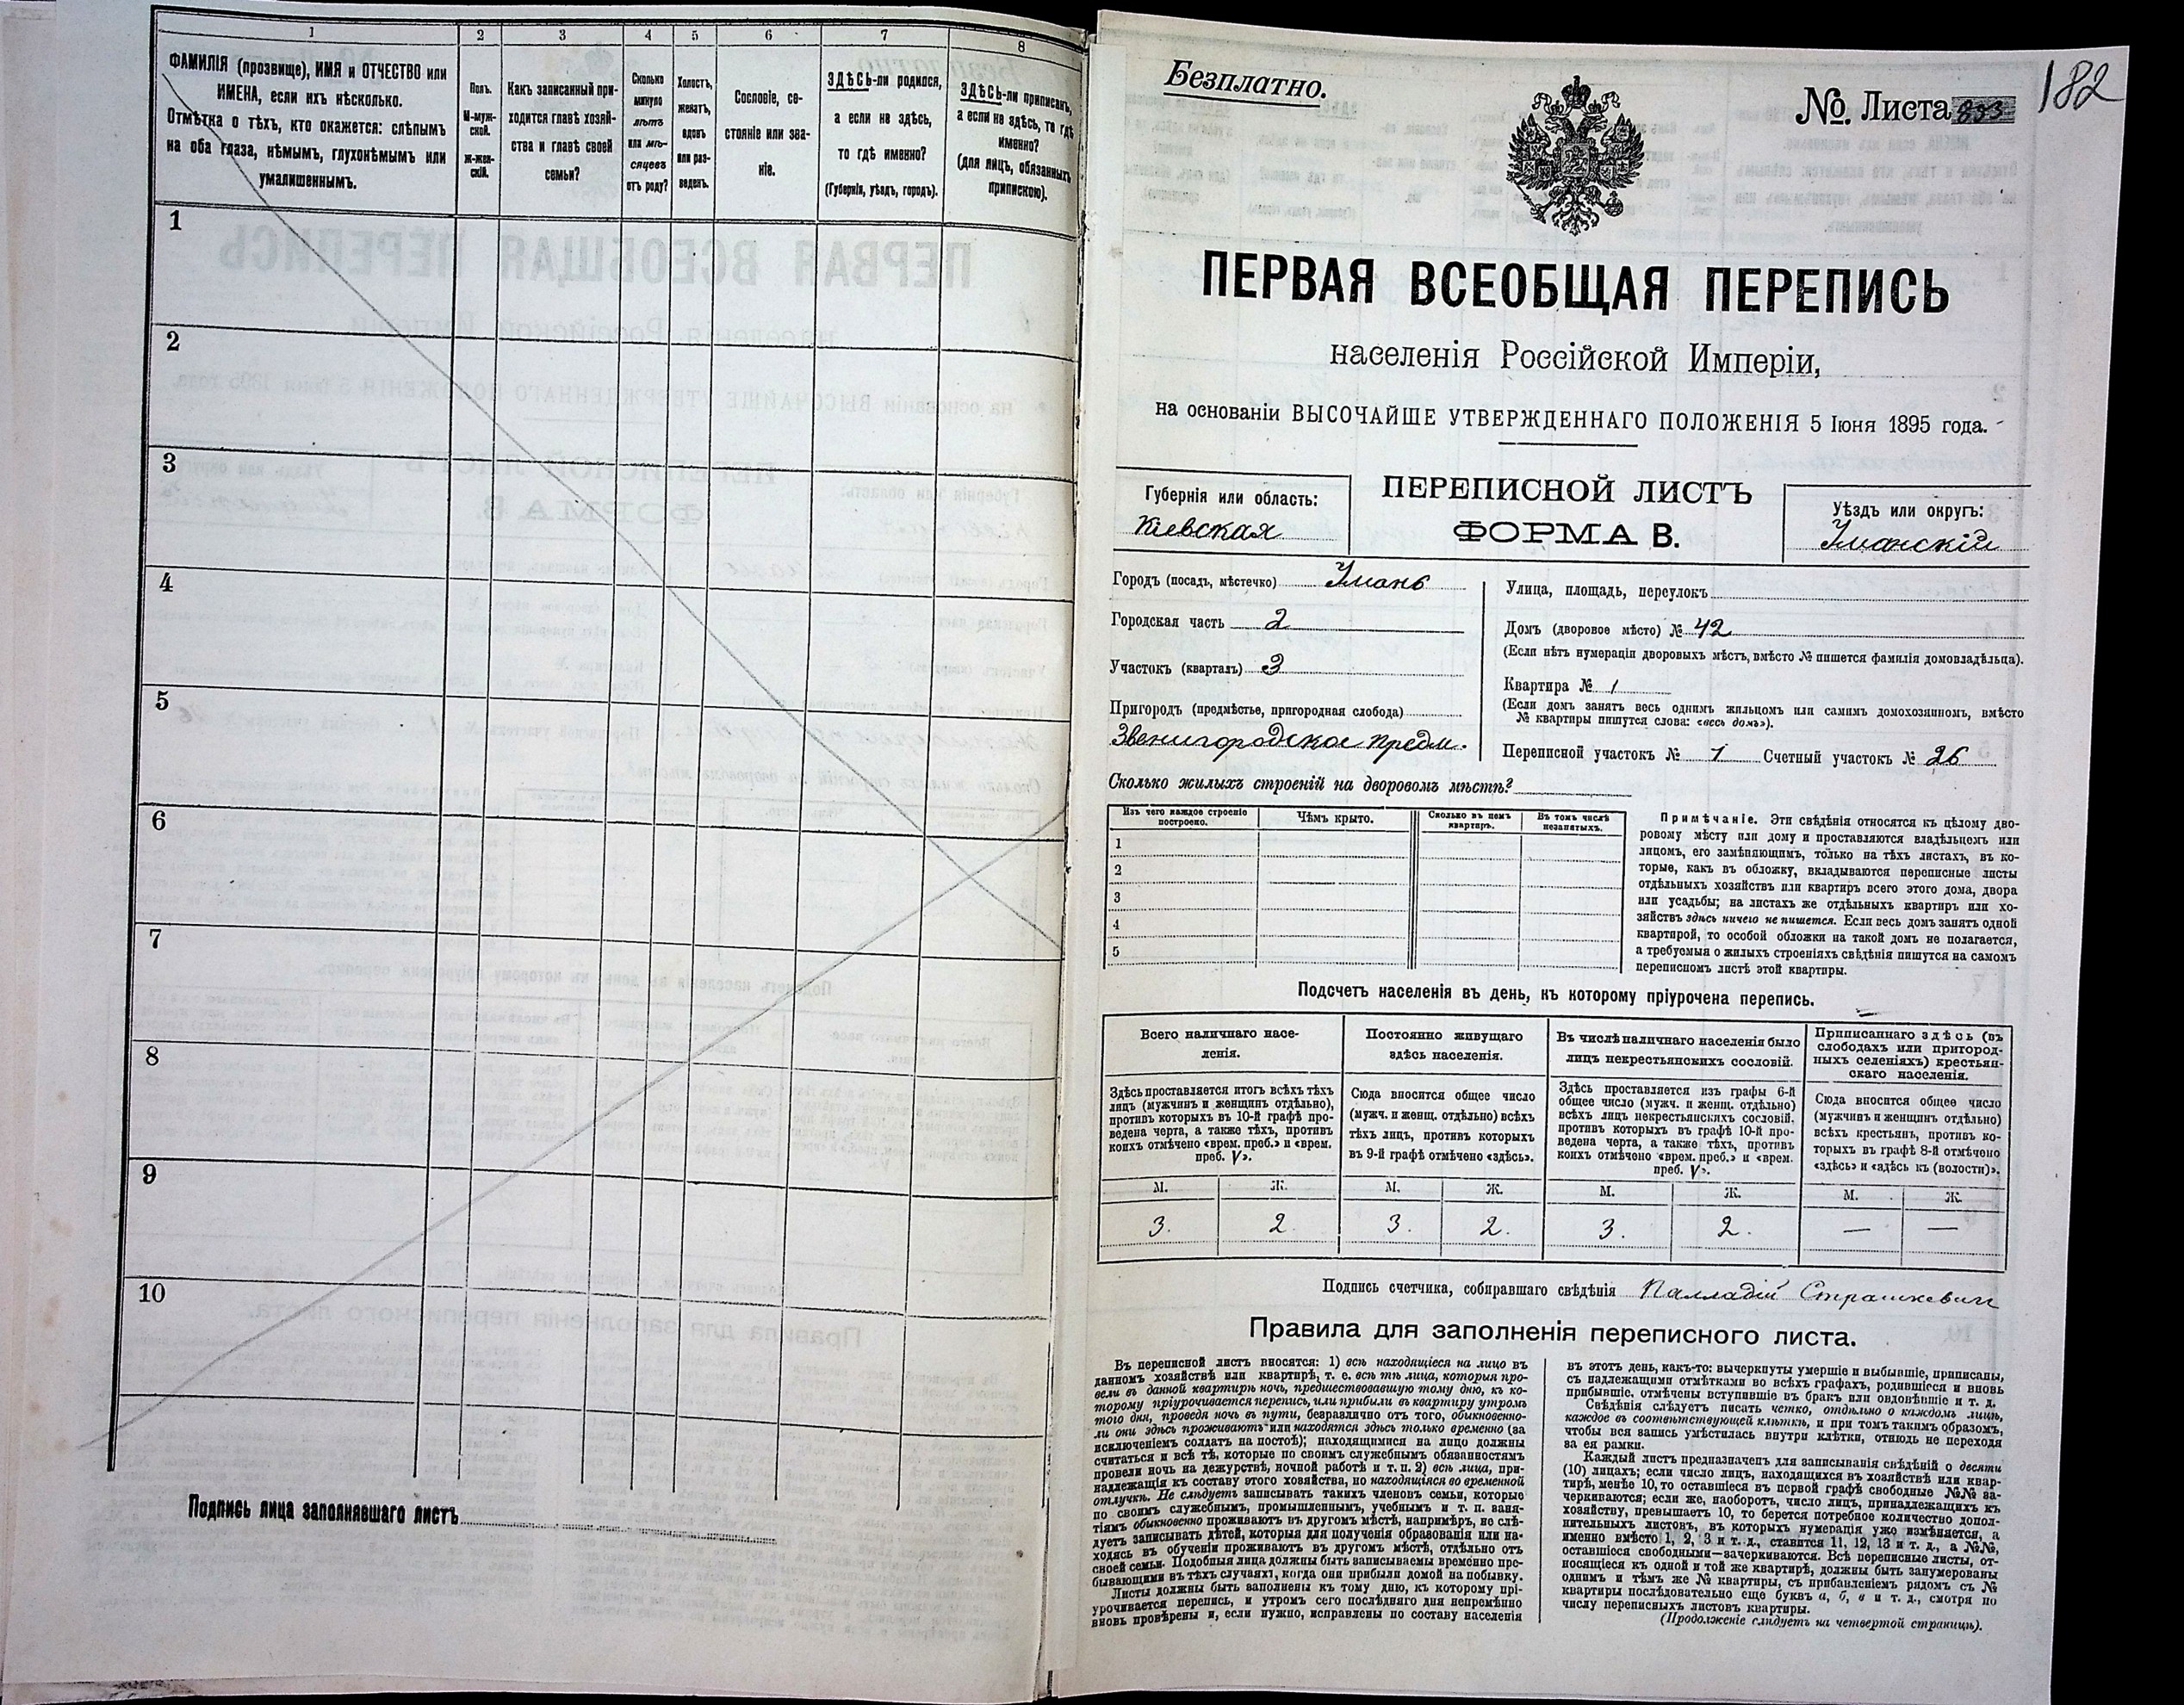 1
ФАМИЛІЯ (прозвище), ИМЯ и ОТЧЕСТВО или
ИМЕНА, если ихъ нѣсколько.
Отмѣтка о тѣхъ, кто окажется: слѣпымъ
на оба глаза, нѣмымъ, глухонѣмымъ или
умалишеннымъ.
2
Полъ.
М-муж-
ской.
ж-жен-
скій.
3
Какъ записанный при-
ходится главѣ хозяй-
ства и главѣ своей
семьи?
4
Сколько
минуло
лѣтъ
или мѣ-
сяцевъ
отъ роду?
5
Холостъ,
женатъ,
вдовъ
или раз-
веденъ.
6
Сословіе, со-
стояніе или зва-
ніе.
7
ЗДѢСЬ-ли родился,
а если не здѣсь,
то гдѣ именно?
(Губернія, уѣздъ, городъ).
8
ЗДѢСЬ-ли приписанъ,
а если не здѣсь, то гдѣ
именно?
(для лицъ, обязанныхъ
припискою).
1
2
3
4
5
6
7
8
9
10
Подпись лица заполнявшаго листъ
Безплатно.
№. Листа 853
182
ПЕРВАЯ ВСЕОБЩАЯ ПЕРЕПИСЬ
населенія Россійской Имперіи,
на основаніи ВЫСОЧАЙШЕ УТВЕРЖДЕННАГО ПОЛОЖЕНІЯ 5 Іюня 1895 года.
Губернія или область:
Кіевская
ПЕРЕПИСНОЙ ЛИСТЪ
ФОРМА В.
Уѣздъ или округъ:
Уманскій
Городъ (посадъ, мѣстечко) Умань
Городская часть 2
Участокъ (кварталъ) 3
Пригородъ (предмѣстье, пригородная слобода)
Звенигородское предм.
Улица, площадь, переулокъ
Домъ (дворовое мѣсто) № 42
(Если нѣтъ нумераціи дворовыхъ мѣстъ, вмѣсто № пишется фамилія домовладѣльца).
Квартира № 1
(Если домъ занятъ весь однимъ жильцомъ или самимъ домохозяиномъ, вмѣсто
№ квартиры пишутся слова: «весь домъ»).
Переписной участокъ № 1 Счетный участокъ № 26
Сколько жилыхъ строеній на дворовомъ мѣстѣ?
Изъ чего каждое строеніе
построено.
Чѣмъ крыто.
Сколько въ немъ
квартиръ.
Въ томъ числѣ
незанятыхъ.
1
2
3
4
5
Примѣчаніе. Эти свѣдѣнія относятся къ цѣлому дво-
ровому мѣсту или дому и проставляются владѣльцемъ или
лицомъ, его замѣняющимъ, только на тѣхъ листахъ, въ ко-
торые, какъ въ обложку, вкладываются переписные листы
отдѣльныхъ хозяйствъ или квартиръ всего этого дома, двора
или усадьбы; на листахъ же отдѣльныхъ квартиръ или хо-
зяйствъ здѣсь ничего не пишется. Если весь домъ занятъ одной
квартирой, то особой обложки на такой домъ не полагается,
а требуемыя о жилыхъ строеніяхъ свѣдѣнія пишутся на самомъ
переписномъ листѣ этой квартиры.
Подсчетъ населенія въ день, къ которому пріурочена перепись.
Всего наличнаго насе-
ленія.
Здѣсь проставляется итогъ всѣхъ тѣхъ
лицъ (мужчинъ и женщинъ отдѣльно),
противъ которыхъ въ 10-й графѣ про-
ведена черта, а также тѣхъ, противъ
коихъ отмѣчено «врем. преб.» и «врем.
преб. V».
Постоянно живущаго
здѣсь населенія.
Сюда вносится общее число
(мужч. и женщ. отдѣльно) всѣхъ
тѣхъ лицъ, противъ которыхъ
въ 9-й графѣ отмѣчено «здѣсь».
Въ числѣ наличнаго населенія было
лицъ некрестьянскихъ сословій.
Здѣсь проставляется изъ графы 6-й
общее число (мужч. и женщ. отдѣльно)
всѣхъ лицъ некрестьянскихъ сословій.
противъ которыхъ въ графѣ 10-й про-
ведена черта, а также тѣхъ, противъ
коихъ отмѣчено «врем. преб.» и «врем.
преб. V».
Приписаннаго здѣсь (въ
слободахъ или пригород-
ныхъ селеніяхъ) крестьян-
скаго населенія.
Сюда вносится общее число
(мужчинъ и женщинъ отдѣльно)
всѣхъ крестьянъ, противъ ко-
торыхъ въ графѣ 8-й отмѣчено
«здѣсь» и «здѣсь къ (волости)».
М. Ж. М. Ж. М. Ж. М. Ж.
3. 2. 3. 2. 3. 2. — —
Подпись счетчика, собиравшаго свѣдѣнія Палладій Страшкевич
Правила для заполненія переписного листа.
Въ переписной листъ вносятся: 1) всѣ находящіеся на лицо въ
данномъ хозяйствѣ или квартирѣ, т. е. всѣ тѣ лица, которыя про-
вели въ данной квартирѣ ночь, предшествовавшую тому дню, къ ко-
торому пріурочивается перепись, или прибыли въ квартиру утромъ
того дня, проведя ночь въ пути, безразлично отъ того, обыкновенно-
ли они здѣсь проживаютъ или находятся здѣсь только временно (за
исключеніемъ солдатъ на постоѣ); находящимися на лицо должны
считаться и всѣ тѣ, которые по своимъ служебнымъ обязанностямъ
провели ночь на дежурствѣ, ночной работѣ и т. п. 2) всѣ лица, при-
надлежащія къ составу этого хозяйства, но находящіяся во временной
отлучкѣ. Не слѣдуетъ записывать такихъ членовъ семьи, которые
по своимъ служебнымъ, промышленнымъ, учебнымъ и т. п. заня-
тіямъ обыкновенно проживаютъ въ другомъ мѣстѣ, напримѣръ, не слѣ-
дуетъ записывать дѣтей, которыя для полученія образованія или на-
ходясь въ обученіи проживаютъ въ другомъ мѣстѣ, отдѣльно отъ
своей семьи. Подобныя лица должны быть записываемы временно пре-
бывающими въ тѣхъ случаяхъ, когда они прибыли домой на побывку.
Листы должны быть заполнены къ тому дню, къ которому прі-
урочивается перепись, и утромъ сего послѣдняго дня непремѣнно
вновь провѣрены и, если нужно, исправлены по составу населенія
въ этотъ день, какъ-то: вычеркнуты умершіе и выбывшіе, приписаны,
съ надлежащими отмѣтками во всѣхъ графахъ, родившіеся и вновь
прибывшіе. отмѣчены вступившіе въ бракъ или овдовѣвшіе и т. д.
Свѣдѣнія слѣдуетъ писать четко, отдѣльно о каждомъ лицѣ,
каждое въ соотвѣтствующей клѣткѣ, и при томъ такимъ образомъ,
чтобы вся запись умѣстилась внутри клѣтки, отнюдь не переходя
за ея рамки.
Каждый листъ предназначенъ для записыванія свѣдѣній о десяти
(10) лицахъ; если число лицъ, находящихся въ хозяйствѣ или квар-
тирѣ, менѣе 10, то оставшіеся въ первой графѣ свободные №№ за-
черкиваются; если же, наоборотъ, число лицъ, принадлежащихъ къ
хозяйству, превышаетъ 10, то берется потребное количество допол-
нительныхъ листовъ, въ которыхъ нумерація уже измѣняется, а
именно вмѣсто 1, 2, 3 и т. д., ставится 11, 12, 13 и т. д., а №№,
оставшіеся свободными—зачеркиваются. Всѣ переписные листы, от-
носящіеся къ одной и той же квартирѣ, должны быть занумерованы
однимъ и тѣмъ же № квартиры, съ прибавленіемъ рядомъ съ №
квартиры послѣдовательно еще буквъ а, б, в и т. д., смотря по
числу переписныхъ листовъ квартиры.
(Продолженіе слѣдуетъ на четвертой страницѣ).